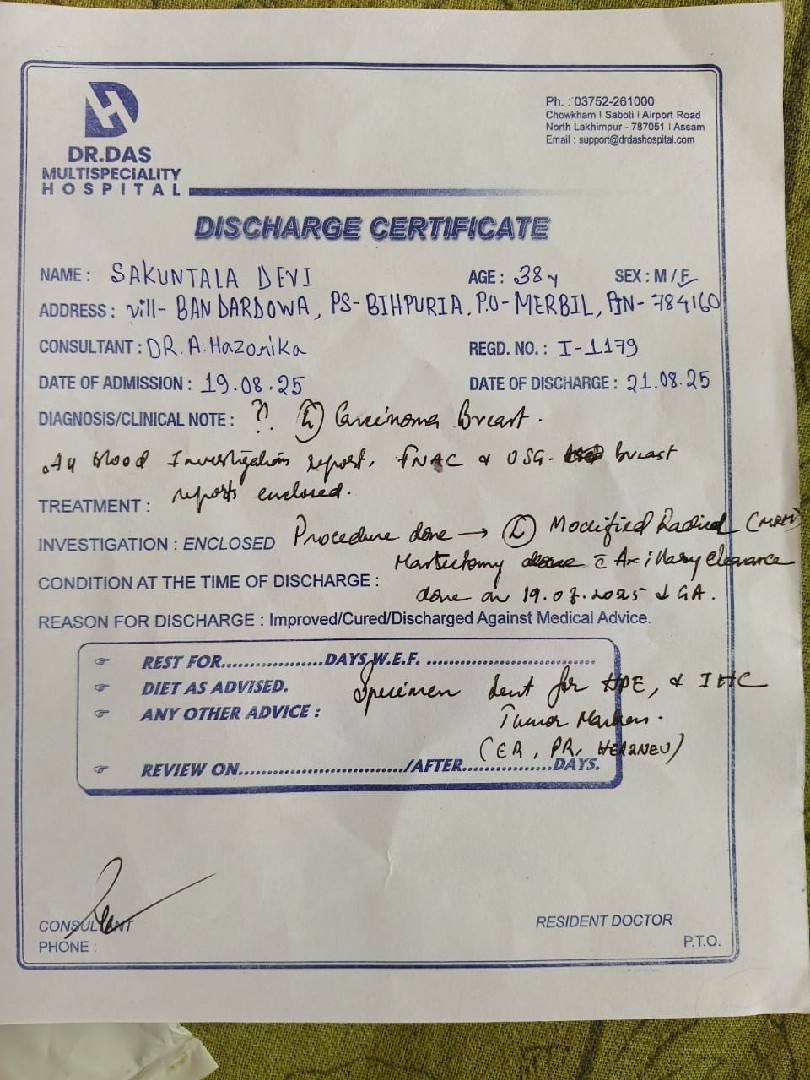 DR.DAS
MULTISPECIALITY
HOSPITAL
Ph. : 03752-261000
Chowkham I Saboti I Airport Road
North Lakhimpur - 787051 I Assam
Email : support@drdashospital.com
DISCHARGE CERTIFICATE
NAME : SAKUNTALA DEVI AGE : 38y SEX : M / F
ADDRESS : vill- BANDARDOWA, PS- BIHPURIA, P.O- MERBIL, PIN- 784160
CONSULTANT : DR. A. Hazorika REGD. NO. : I-1179
DATE OF ADMISSION : 19.08.25 DATE OF DISCHARGE : 21.08.25
DIAGNOSIS/CLINICAL NOTE : ? (L) Carcinoma Breast.
All blood Investigations report, FNAC & USG- breast
reports enclosed.
TREATMENT :
INVESTIGATION : ENCLOSED Procedure done → (L) Modified Radical (MRM)
Mastectomy c̄ Axillary clearance
CONDITION AT THE TIME OF DISCHARGE : done on 19.08.2025 GA.
REASON FOR DISCHARGE : Improved/Cured/Discharged Against Medical Advice.
REST FOR..................DAYS W.E.F. ..............................
DIET AS ADVISED. Specimen sent for HPE, & IHC
ANY OTHER ADVICE : Tumor Markers.
(ER, PR, HER2NEU)
REVIEW ON............................/AFTER...............DAYS.
CONSULTANT
PHONE :
RESIDENT DOCTOR
P.T.O.